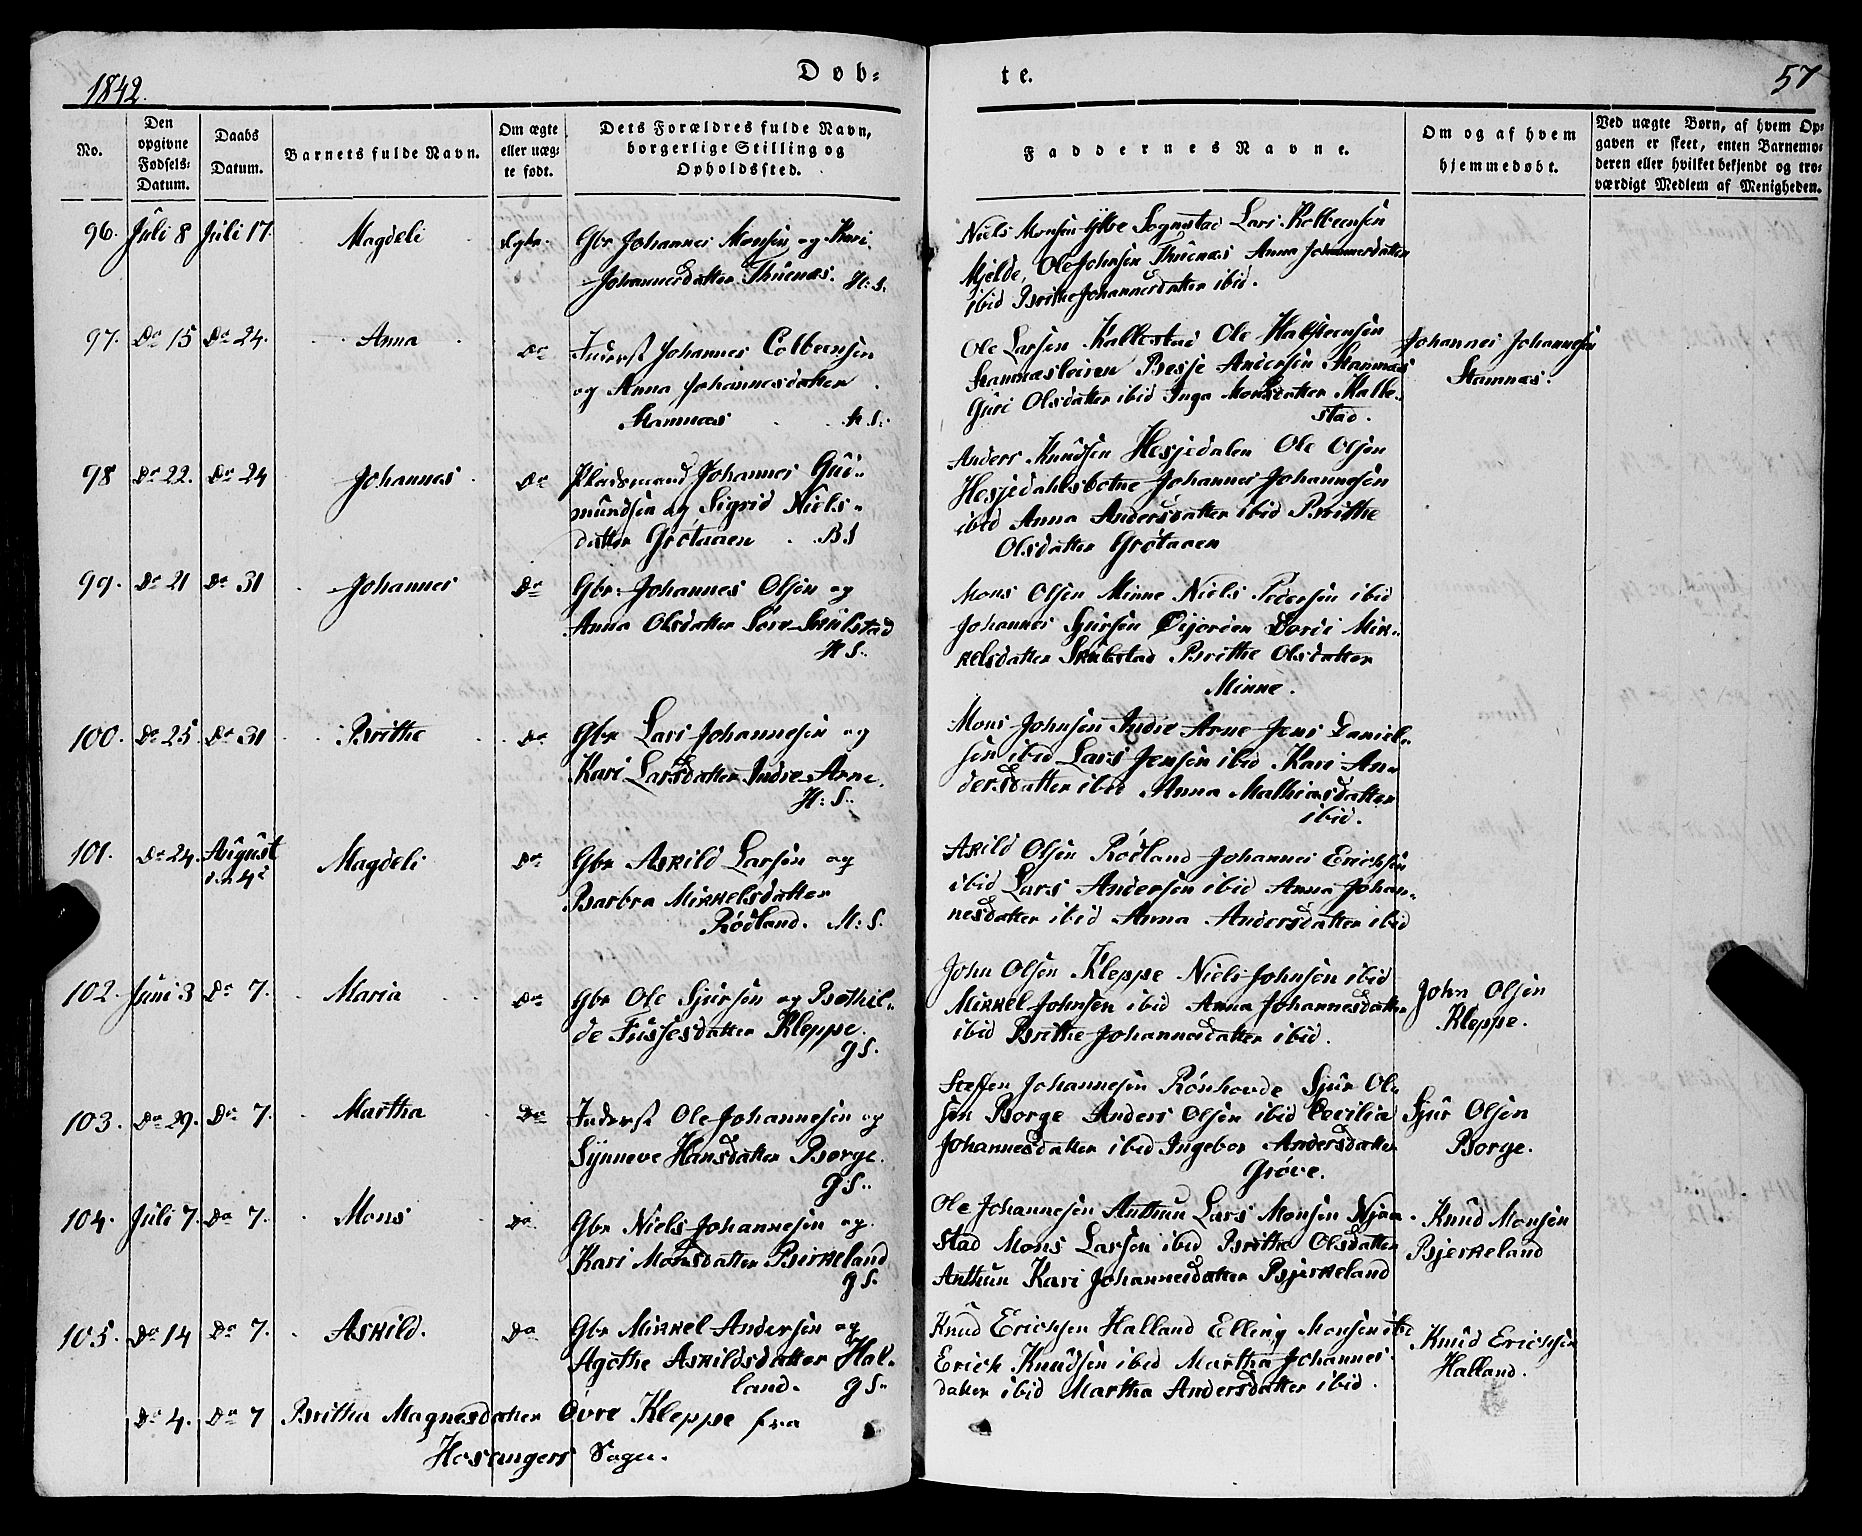 1842.
Døb=
te.
57
No.
Den opgivne Fødsels-Datum.
Daabs Datum.
Barnets fulde Navn.
Om ægte eller uægte født.
Dets Forældres fulde Navn, borgerlige Stilling og Opholdssted.
Faddernes Navne.
Om og af hvem hjemmedøbt.
Ved uægte Børn, af hvem Opgaven er skeet, enten Barnemoderen eller hvilket bekjendt og troværdigt Medlem af Menigheden.
96. Juli 8 Juli 17. Magdeli Egte. Gbr Johannes Monsen og Kari
Johannesdatter Thuenæs. H:S.
Niels Monsen Ytre Sognstad Lars Kolbeensen
Mjelde, Ole Johnsen Thuenæs Anna Johannesdatter
ibid Brithe Johannesdatter ibid.
97. Do 15 Do 24. Anna Do Inderst Johannes Colbeensen
og Anna Johannesdatter
Stamnæs H:S:
Ole Larsen Kallestad Ole Halsteensen
Stamnæsleiren Besse Andersen Stamnæs
Guri Olsdatter ibid Inga Monsdatter Kalle-
stad.
Johannes Johannesen
Stamnæs.
98 Do 22. Do 24 Johannes Do Pladsmand Johannes Gud-
mundsen og Sigrid Niels-
datter Grøtaaen B S
Anders Knudsen Hesjedalen Ole Olsen
Hesjedahlsbotne Johannes Johannesen
ibid Anna Andersdatter ibid Brithe
Olsdatter Grøtaaen
99. Do 21 Do 31 Johannes Do Gbr: Johannes Olsen og
Anna Olsdatter Søre Skulstad
H S.
Mons Olsen Minne Niels Pedersen ibid
Johannes Sjursen Øijorden Dordi Mik-
kelsdatter Skulstad Brithe Olsdatter
Minne.
100. Do 25. Do 31 Brithe Do Gbr Lars Johannesen og
Kari Larsdatter Indre Arne.
H:S.
Mons Johnsen Indre Arne Jens Daniel-
sen ibid Lars Jensen ibid Kari An-
dersdatter ibid Anna Mathiasdatter
ibid.
101. Do 24. August den 4de Magdeli Do Gbr Askild Larsen og
Barbra Mikkelsdatter
Rødland. M:S.
Askild Olsen Rødland Johannes Ericksen
ibid Lars Andersen ibid Anna Johan-
nesdatter ibid Anna Andersdatter ibid
102. Juni 3 Do 7. Maria Do Gbr Ole Sjursen og Bothil-
de Fussesdatter Kleppe.
G S.
John Olsen Kleppe Niels Johnsen ibid
Mikkel Johnsen ibid Anna Johannesdatter
ibid Brithe Johannesdatter ibid.
John Olsen
Kleppe.
103. Do 29. Do 7. Martha Do Inderst Ole Johannesen og
Synneve Hansdatter Borge.
G S.
Steffen Johannesen Rønhovde Sjur Ol-
sen Borge Anders Olsen ibid Cecilia
Johannesdatter ibid Ingebor Andersdatter
Grøve.
Sjur Olsen
Borge.
104. Juli 7. Do 7. Mons Do Gbr Niels Johannesen og
Kari Monsdatter Birkeland
G S.
Ole Johannesen Anthun Lars Monsen Njaa-
stad Mons Larsen ibid Brithe Olsdatter
Anthun Kari Johannesdatter Bjerkeland
Knud Monsen
Bjerkeland
105. Do 14 Do 7. Askild. Do Gbr Mikkel Andersen og
Agathe Askildsdatter Hal-
land. G S.
Knud Ericksen Halland Elling Monsen ibid
Erick Knudsen ibid Martha Johannes-
datter ibid Martha Andersdatter ibid.
Knud Ericksen
Halland.
Do 4. Do 7 Britha Magnesdatter Øvre Kleppe fra
Hosangers Sogn.